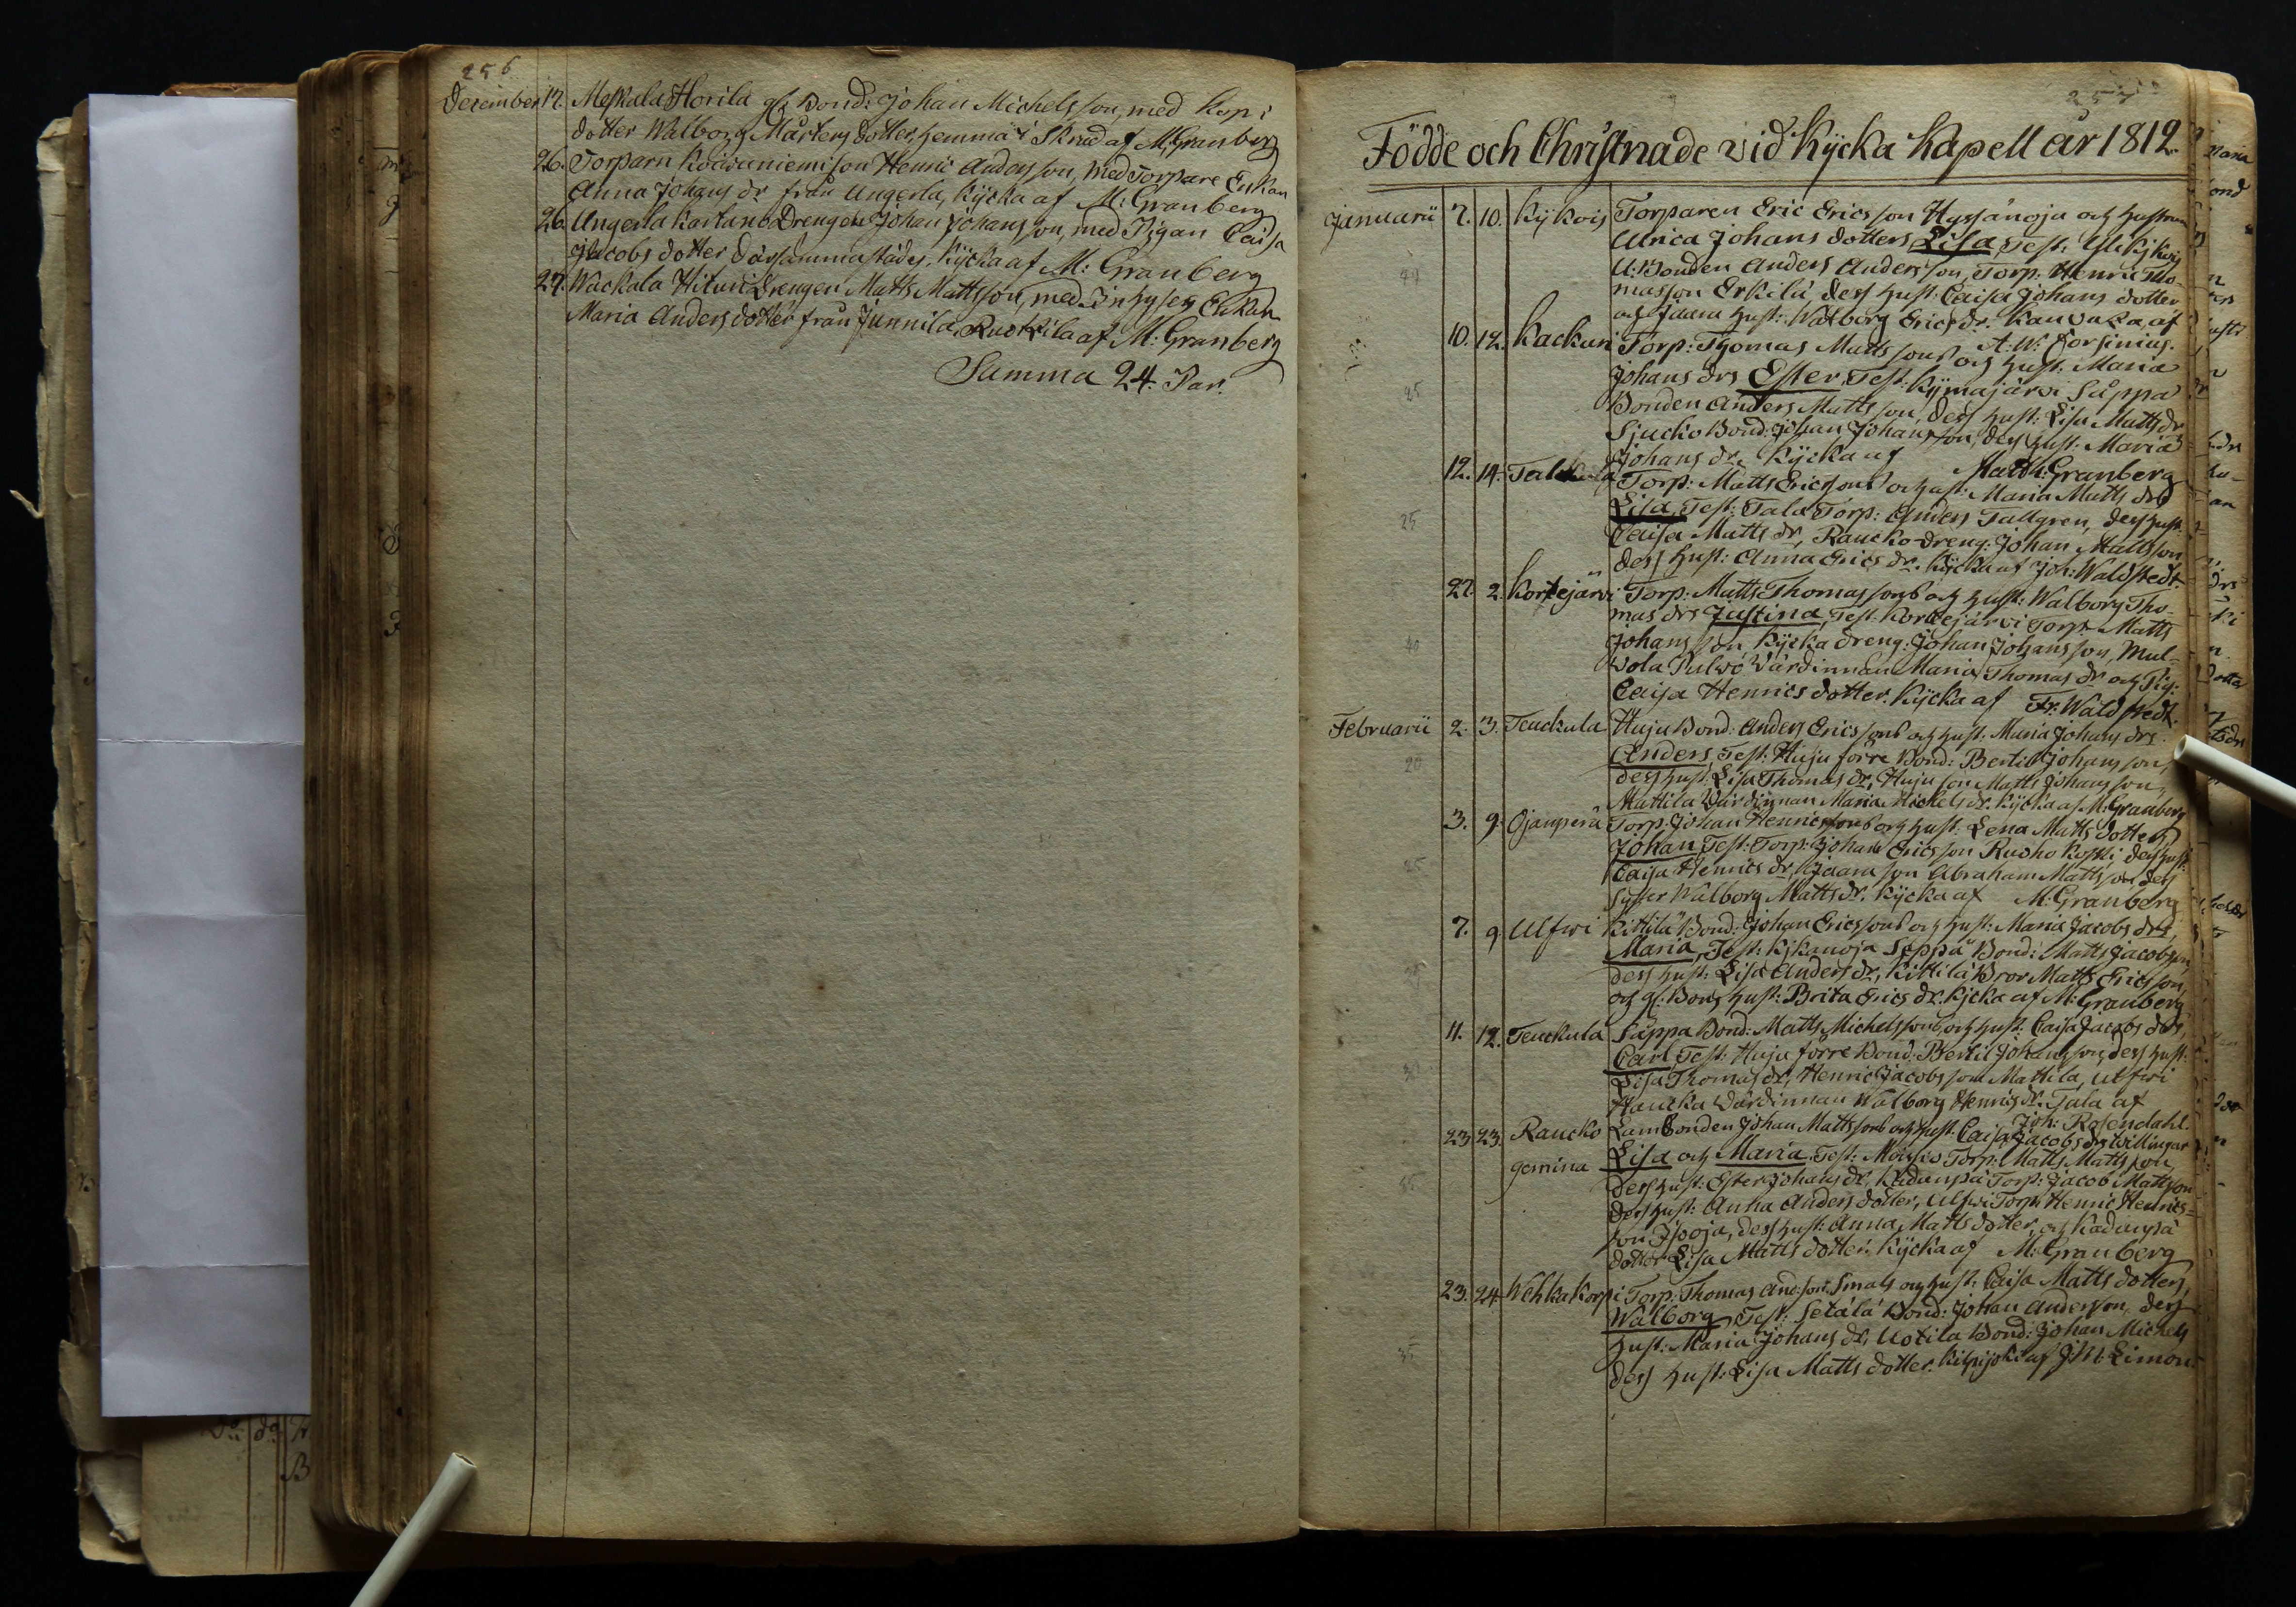 256
December 12. Meskala Horila gl. Bond: Johan Michelsson, med Kop:
dotter Walborg Mårtens dotter, hemma i af M. Granberg
26. Torparn Koivuniemi son Henric Andersson, med Torpare Enkan
Anna Johans dr från Ungerla, Kÿcka af M: Granberg
26. Ungerla Kartano Drengen Johan Johansson, med Pigan Caisa
Jacobs dotter därsammastädes, Kÿcka af M: Granberg
27. Wackala Hituri Drengen Matts Mattsson, med Inhyses Enkan
Maria Anders dotter från Junnila, Ruokila af M: Granberg
Summa 24. Par.
257
Födde och Christnade vid Kÿcka Kapell år 1812.
Januarii 7. 10. Kykois Torparen Eric Ericsson Hyssänoja och hustrun
Ulrica Johans dotters Lisa, Test:
U: Bonden Anders Andersson, Torp: Henric Tho-
masson Erkilä, dess hust: Caisa Johans dotter
och hust: Walborg Erics dr. af
A: W: Forsinius.
10. 12. Kackuri Torp: Thomas Mattssons och hust: Maria
Johans drs Ester, Test: Kÿmajärvi Säppä
Bonden Anders Mattsson, dess hust: Lisa Matts dr
Sjucko Bond: Johan Johansson, dess hust: Maria
Johans dr. Kÿcka af Matth: Granberg
12. 14. Torp: Matts Ericssons och hust: Maria Matts drs
Lisa, Test: Tala Torp: Anders Tallgren, dess hust:
Caisa Matts dr, Raucko dreng: Johan Mattsson
dess hust: Anna Erics dr. Kÿcka af Joh: Waldstedt.
27. 2. Kortejärvi Torp: Matts Thomassons och hust: Walborg Tho-
mas drs Justina, Test: Kortejärvi Torp: Matts
Johansson Kÿcka dreng: Johan Johansson, Mul-
vola Pulwo Värdinnan Maria Thomas dr och Pig:
Caisa Henrics dotter. Kÿcka af Fr: Waldstedt.
Februarii 2. 3. Teuckula Huju Bond: Anders Ericssons och hust: Maria Johans drs
Anders, Test: Huju förre Bond: Bertil Johansson,
dess hust: Lisa Thomas dr, Huju son Matts Johansson,
Mattila Värdinnan Maria Michels dr. Kÿcka af M: Granberg
3. 9. Ojanperä Torp: Johan Henricssons och hust: Lena Matts dotters
Johan, Test: Torp: Johan Ericsson Ruoho Koski, dess hust:
Caisa Henrics dr, son Abraham Mattsson, dess
Syster Walborg Matts dr. Kÿcka af M: Granberg
7. 9. Ulfwi Kittilä Bond: Johan Ericssons och hust: Maria Jacobs drs,
Maria, Test: Kykänoja Seppä Bond: Matts Jacobsson,
dess hust: Lisa Anders dr, Kittilä Bror Matts Ericsson,
och gl: Bonds hust: Brita Erics dr. Kÿcka af M: Granberg
11. 12. Teuckula Säppä Bond: Matts Michelssons och hust: Caisa Jacobs drs,
Carl, Test: Huju förre Bond: Bertil Johansson, dess hust:
Lisa Thomas dr, Henric Jacobsson Mattila, Ulfwi
Haucka Värdinnan Walborg Henrics dr. Tala af
Joh: Rosendahl.
23. 23. Raucko Lambonden Johan Mattssons och hust: Caisa Jacobs drs twillingar
gemina Lisa och Maria, Test: Mousio Torp: Matts Mattsson
dess hust: Ester Johans dr, Kadunpä Torp: Jacob Mattsson
dess hust: Anna Anders dotter, Ulfwi Torp: Henric Henrics-
son Isooja, dess hust: Anna Matts dotter, och Kadunpä
dotter Lisa Matts dotter. Kÿcka af M: Granberg
23. 24. Wehkakorpi Torp: Thomas And:son Smals och hust: Caisa Matts dotters,
Walborg, Test: Setälä Bond: Johan Andersson, dess
hust: Maria Johans dr, Uotila Bond: Johan Michels
dess hust: Lisa Matts dotter. Kilpijoki af Limon: